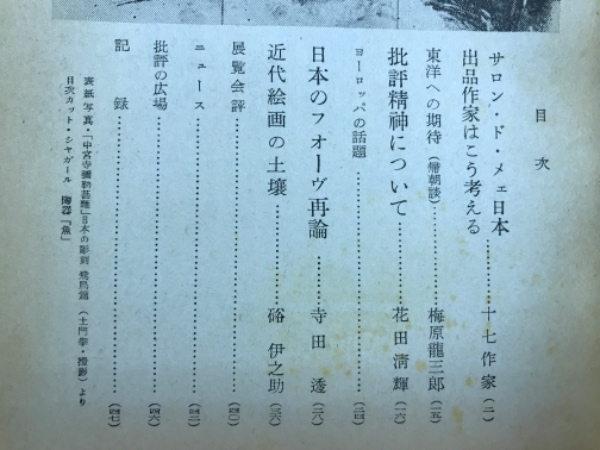 目次
サロン・ド・メェ日本
出品作家はこう考える…………十七作家(二)
東洋への期待(帰朝談)…………梅原龍三郎(一五)
批評精神について…………花田清輝(一六)
ヨーロッパの話題…………(二四)
日本のフォーヴ再論…………寺田透(二八)
近代絵画の土壌…………硲伊之助(三六)
展覧会評…………(四〇)
ニュース…………(四二)
批評の広場…………(四六)
記録…………(四七)
表紙写真・「中宮寺彌勒菩薩」日本の彫刻 飛鳥篇(土門拳・撮影)より
目次カット・シャガール 陶器「魚」